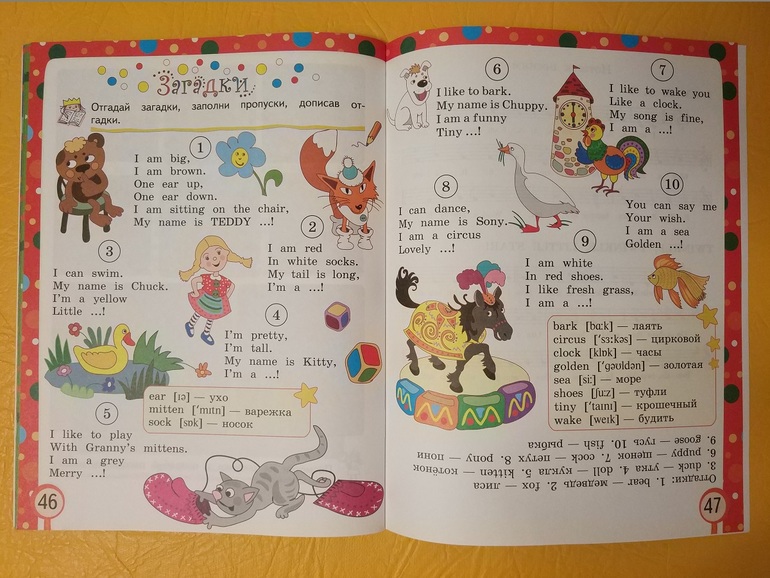 Загадки
Отгадай загадки, заполни пропуски, дописав от-
гадки.
1
I am big,
I am brown.
One ear up,
One ear down.
I am sitting on the chair,
My name is TEDDY ...!
2
I am red
In white socks.
My tail is long,
I'm a ...!
3
I can swim.
My name is Chuck.
I'm a yellow
Little ...!
4
I'm pretty,
I'm tall.
My name is Kitty,
I'm a ...!
ear [ıə] — ухо
mitten [ˈmıtn] — варежка
sock [sɒk] — носок
5
I like to play
With Granny's mittens.
I am a grey
Merry ...!
46
6
I like to bark.
My name is Chuppy.
I am a funny
Tiny ...!
7
I like to wake you
Like a clock.
My song is fine,
I am a ...!
8
I can dance,
My name is Sony.
I am a circus
Lovely ...!
9
I am white
In red shoes.
I like fresh grass,
I am a ...!
10
You can say me
Your wish.
I am a sea
Golden ...!
bark [bɑːk] — лаять
circus [ˈsɜːkəs] — цирковой
clock [klɒk] — часы
golden [ˈɡəʊldən] — золотая
sea [siː] — море
shoes [ʃuːz] — туфли
tiny [ˈtaını] — крошечный
wake [weık] — будить
Отгадки: 1. bear — медведь 2. fox — лиса
3. duck — утка 4. doll — кукла 5. kitten — котёнок
6. puppy — щенок 7. cock — петух 8. pony — пони
9. goose — гусь 10. fish — рыбка
47